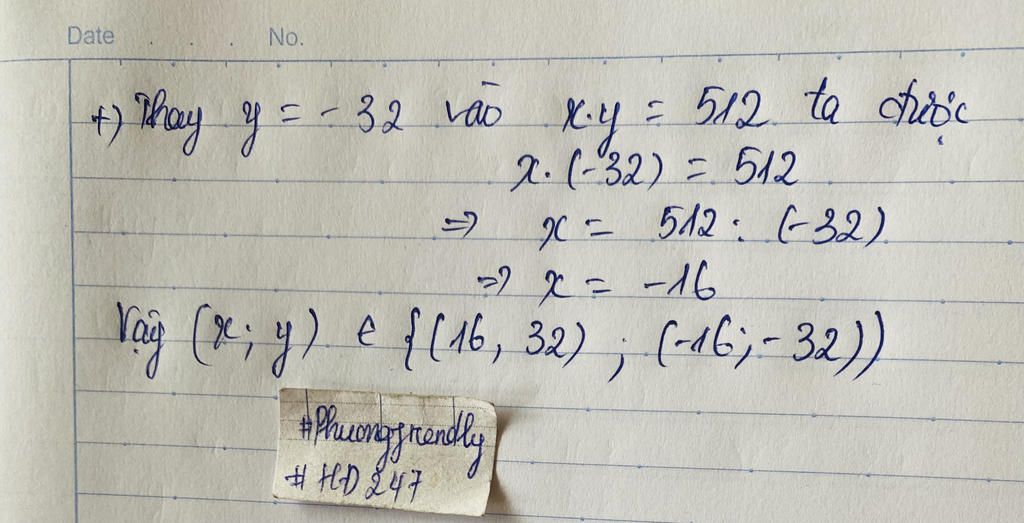 Date . . . No.
+) Thay y = - 32 vào x.y = 512 ta được
x. (-32) = 512
=> x = 512 : (-32)
=> x = -16
Vậy (x; y) ∈ {(16, 32) ; (-16;- 32))
#Phuongfrendly
# HD 247